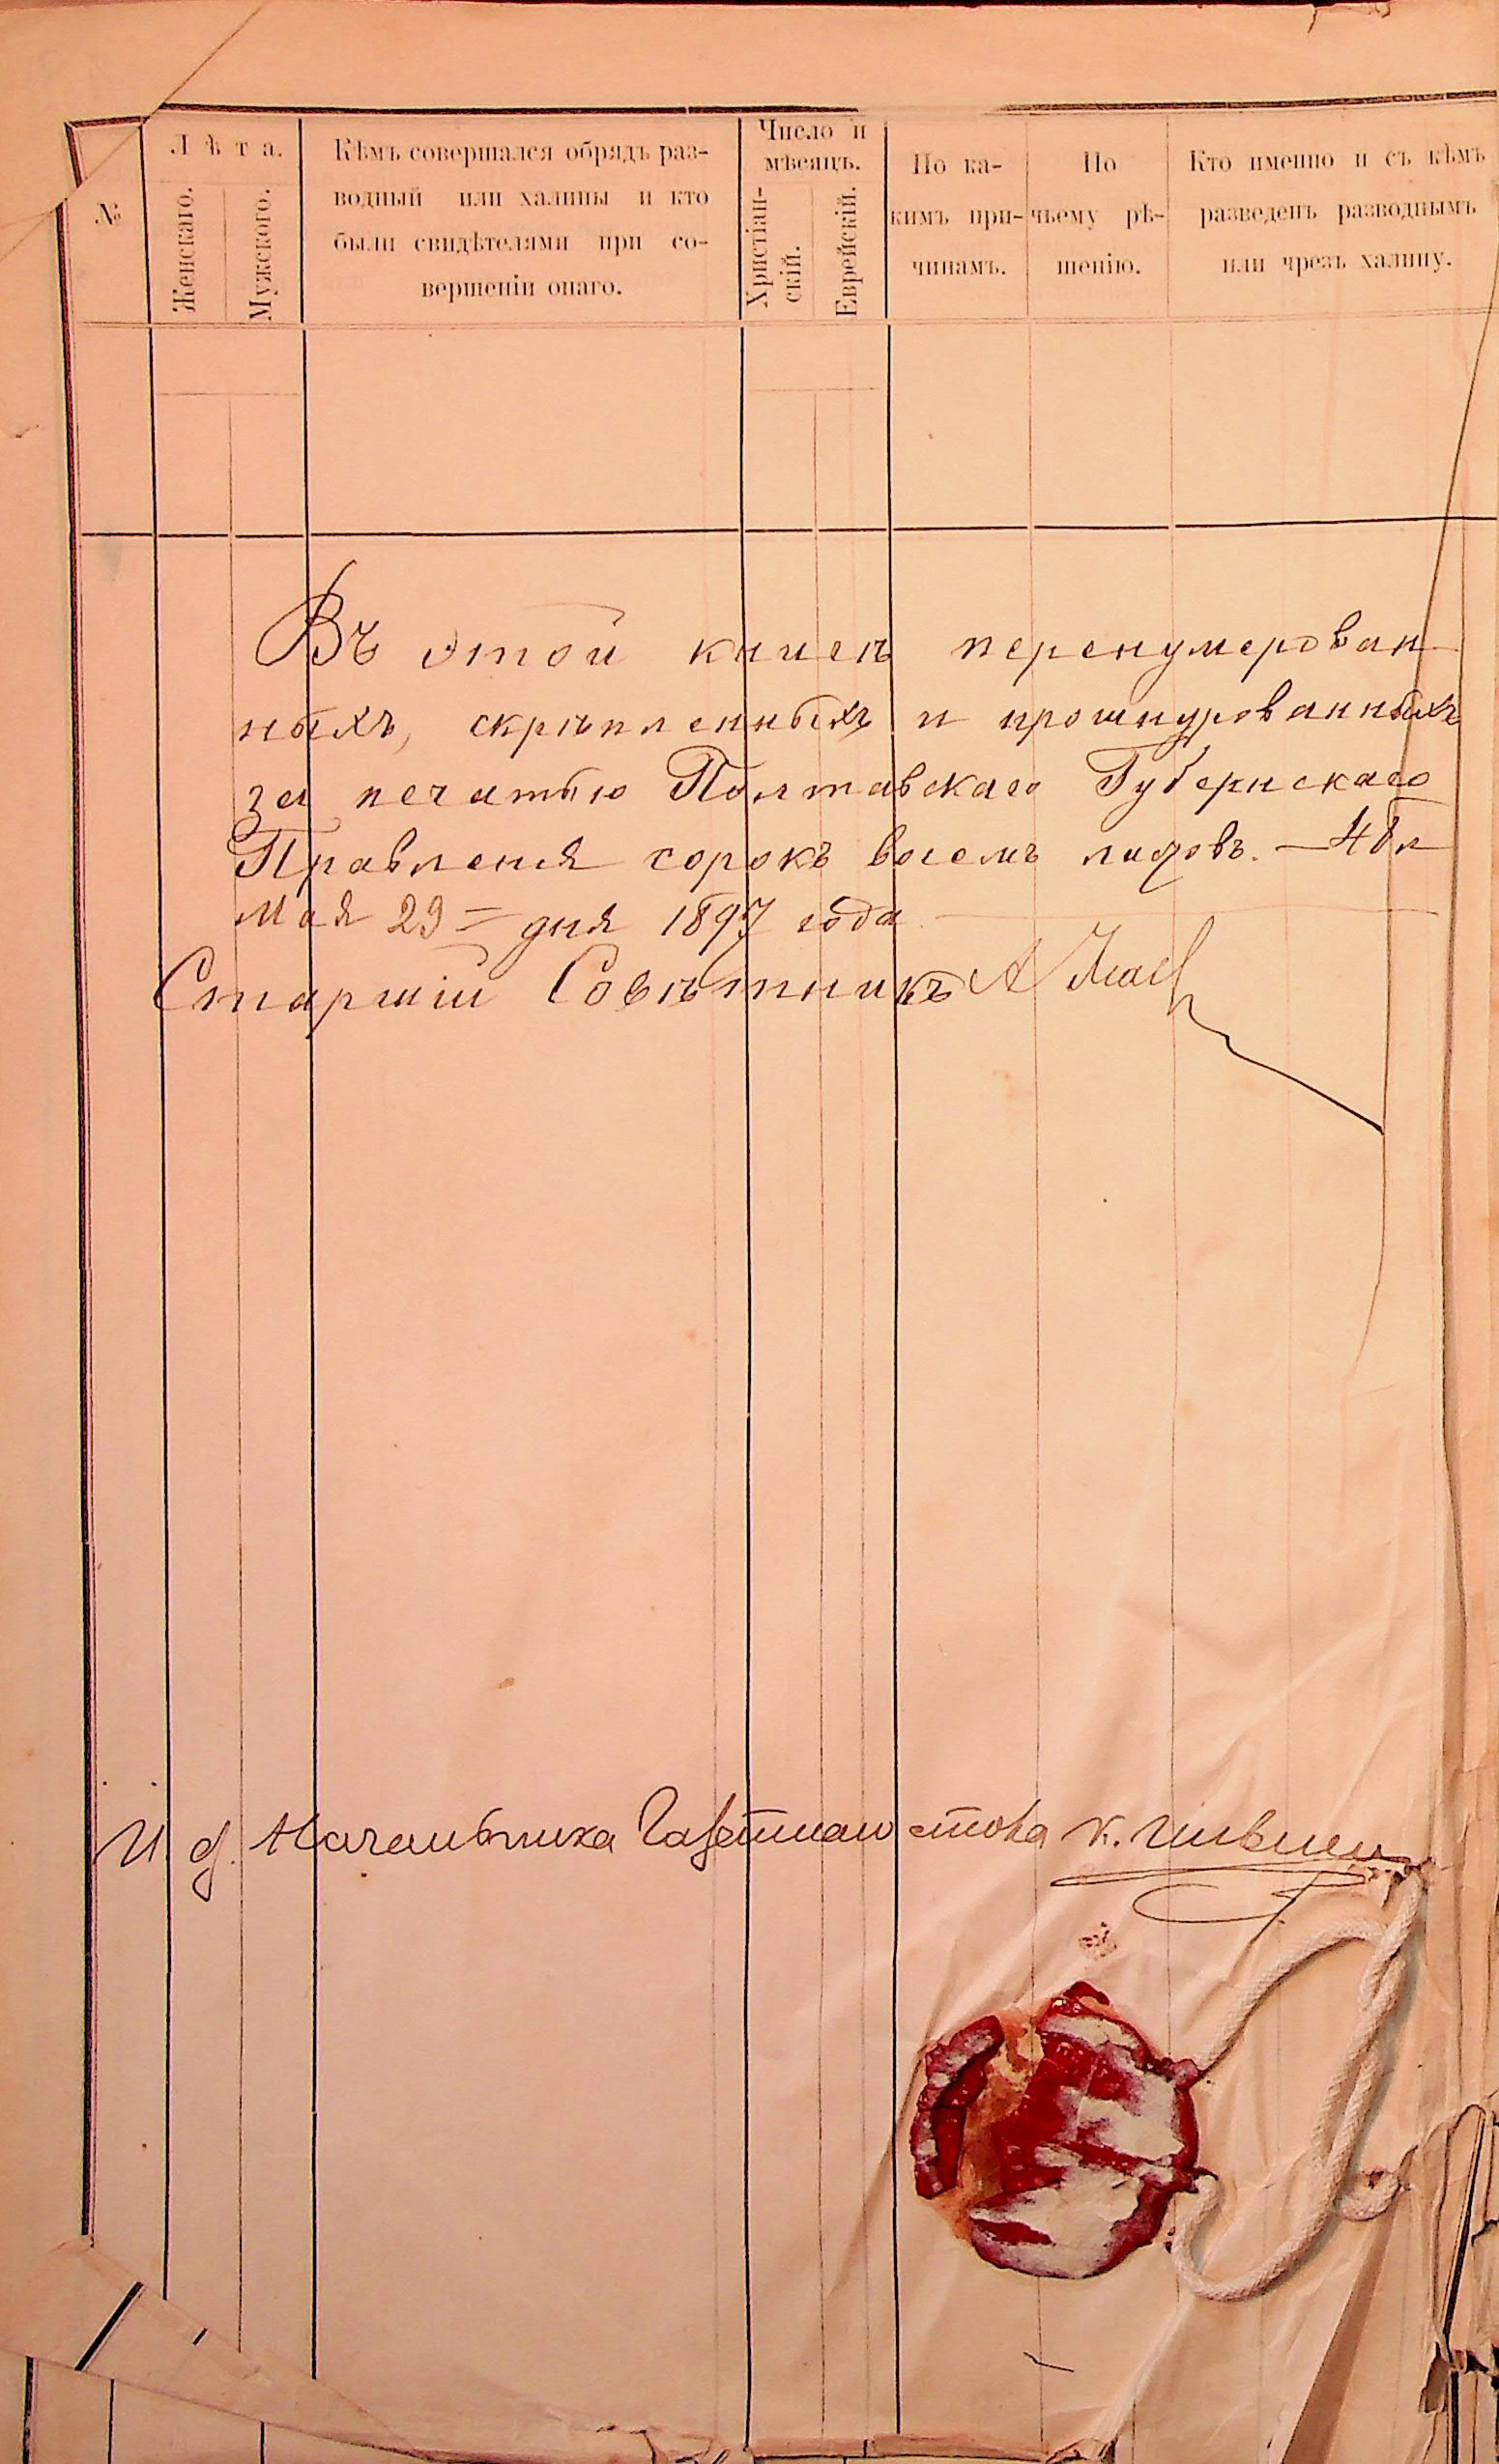 №
Лѣта.
Женскаго.
Мужского.
Кѣмъ совершался обрядъ раз-
водный или халицы и кто
были свидѣтелями при со-
вершеніи онаго.
Число и
мѣсяцъ.
Христіан-
скій.
Еврейскій.
По ка-
кимъ при-
чинамъ.
По
чьему рѣ-
шенію.
Кто именно и съ кѣмъ
разведенъ разводнымъ
или чрезъ халицу.
Въ этой книгѣ перенумерован
ныхъ, скрѣпленныхъ и прошнурованныхъ
за печатью Полтавскаго Губернскаго
Правленія сорокъ восемь листовъ. — 48 л
Мая 29 = дня 1897 года
Старшій Совѣтникъ А
И. д. Начальника Газетнаго стола К.